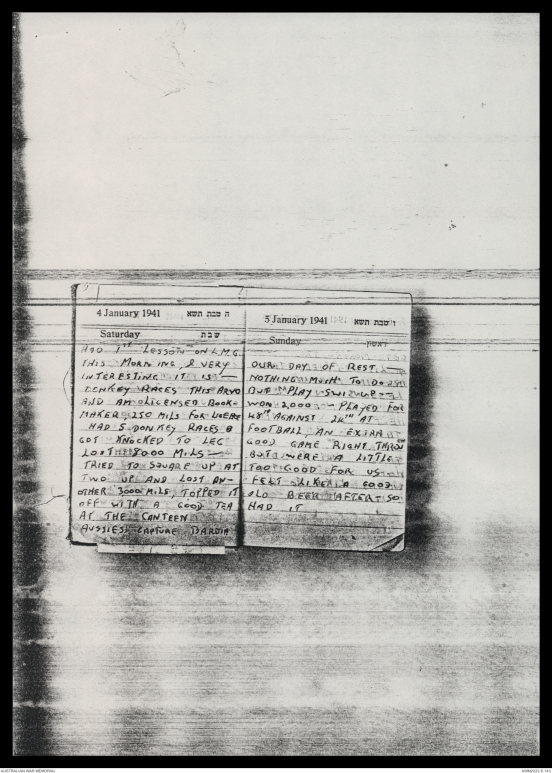 4 January 1941 ה טבת תשא
Saturday שבת
HAD 1ST LESSON ON L.M.G.
THIS MORNING & VERY
INTERESTING IT IS —
DONKEY RACES THIS ARVO
AND AM LICENSED BOOK-
MAKER 250 MILS FOR
HAD 5 DONKEY RACES &
GOT KNOCKED TO LEG
LOST 8000 MILS —
TRIED TO SQUARE UP AT
TWO UP AND LOST AN-
OTHER 3000 MILS, TOPPED IT
OFF WITH A GOOD TEA
AT THE CANTEEN
AUSSIES CAPTURE BARDIA
5 January 1941 ו טבת תשא
Sunday ראשון
OUR DAY OF REST —
NOTHING MUCH TO DO
BUT PLAY SWI UP —
WON 2,000 — PLAYED FOR
48TH AGAINST 24TH AT
FOOTBALL AN EXTRA
GOOD GAME RIGHT THROU
BUT WERE A LITTLE
TOO GOOD FOR US
FELT LIKE A GOOD
OLD BEER AFTER SO
HAD IT
AUSTRALIAN WAR MEMORIAL